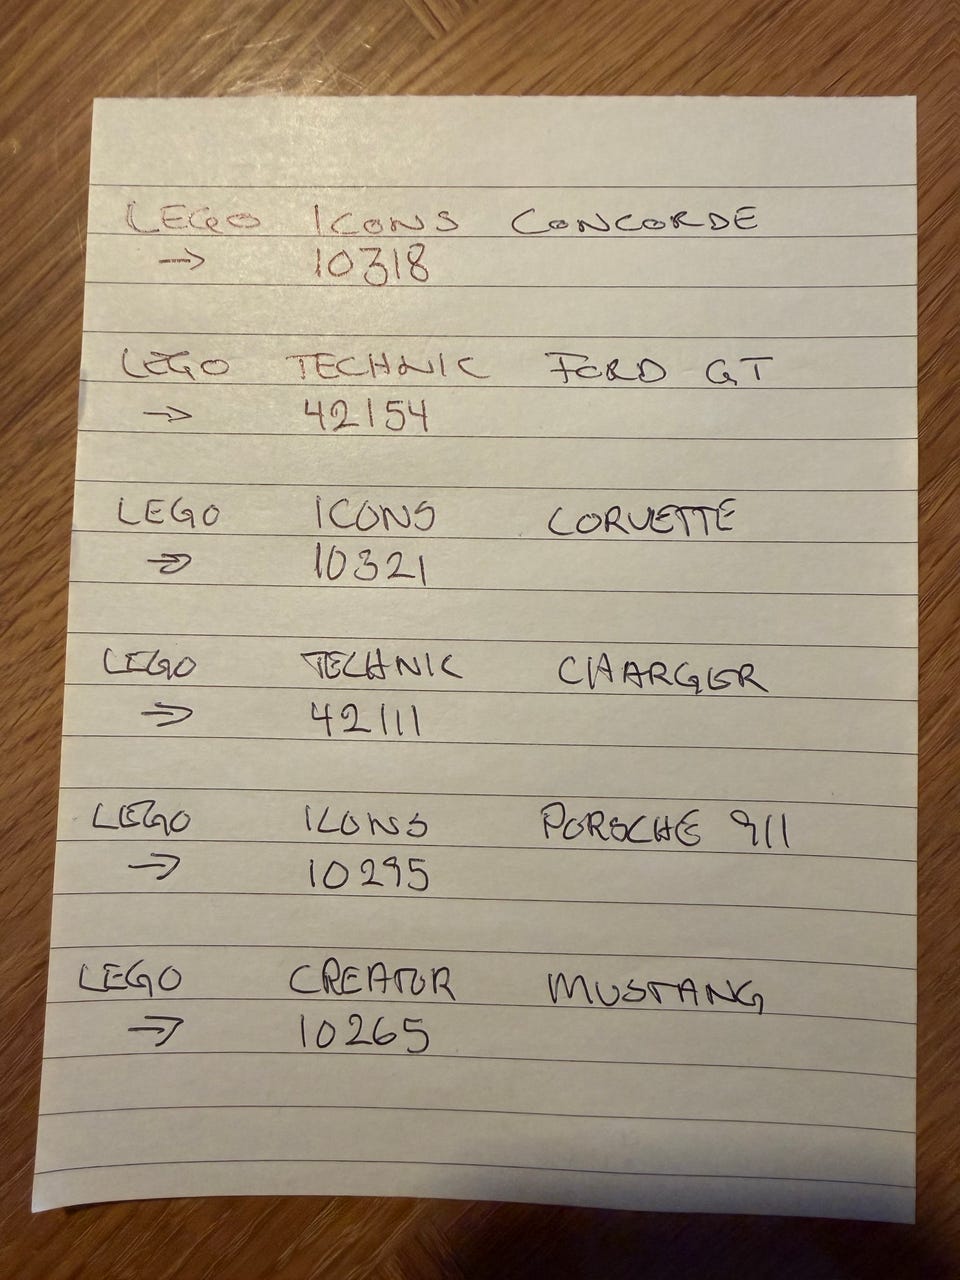 LEGO ICONS CONCORDE
→ 10318
LEGO TECHNIC FORD GT
→ 42154
LEGO ICONS CORVETTE
→ 10321
LEGO TECHNIC CHARGER
→ 42111
LEGO ICONS PORSCHE 911
→ 10295
LEGO CREATOR MUSTANG
→ 10265